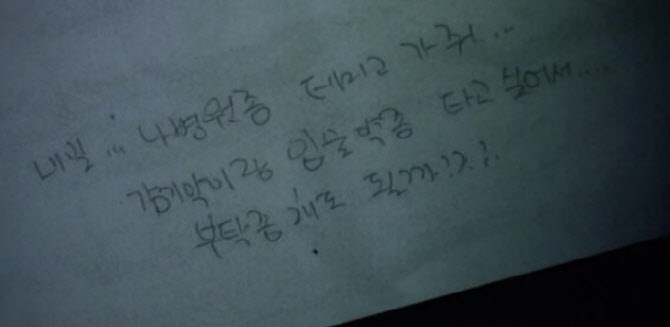 내일... 나 병원좀 데리고 가줘...
감기약이랑 입술약좀 타고 싶어서....
부탁좀 해도 될까!?!.